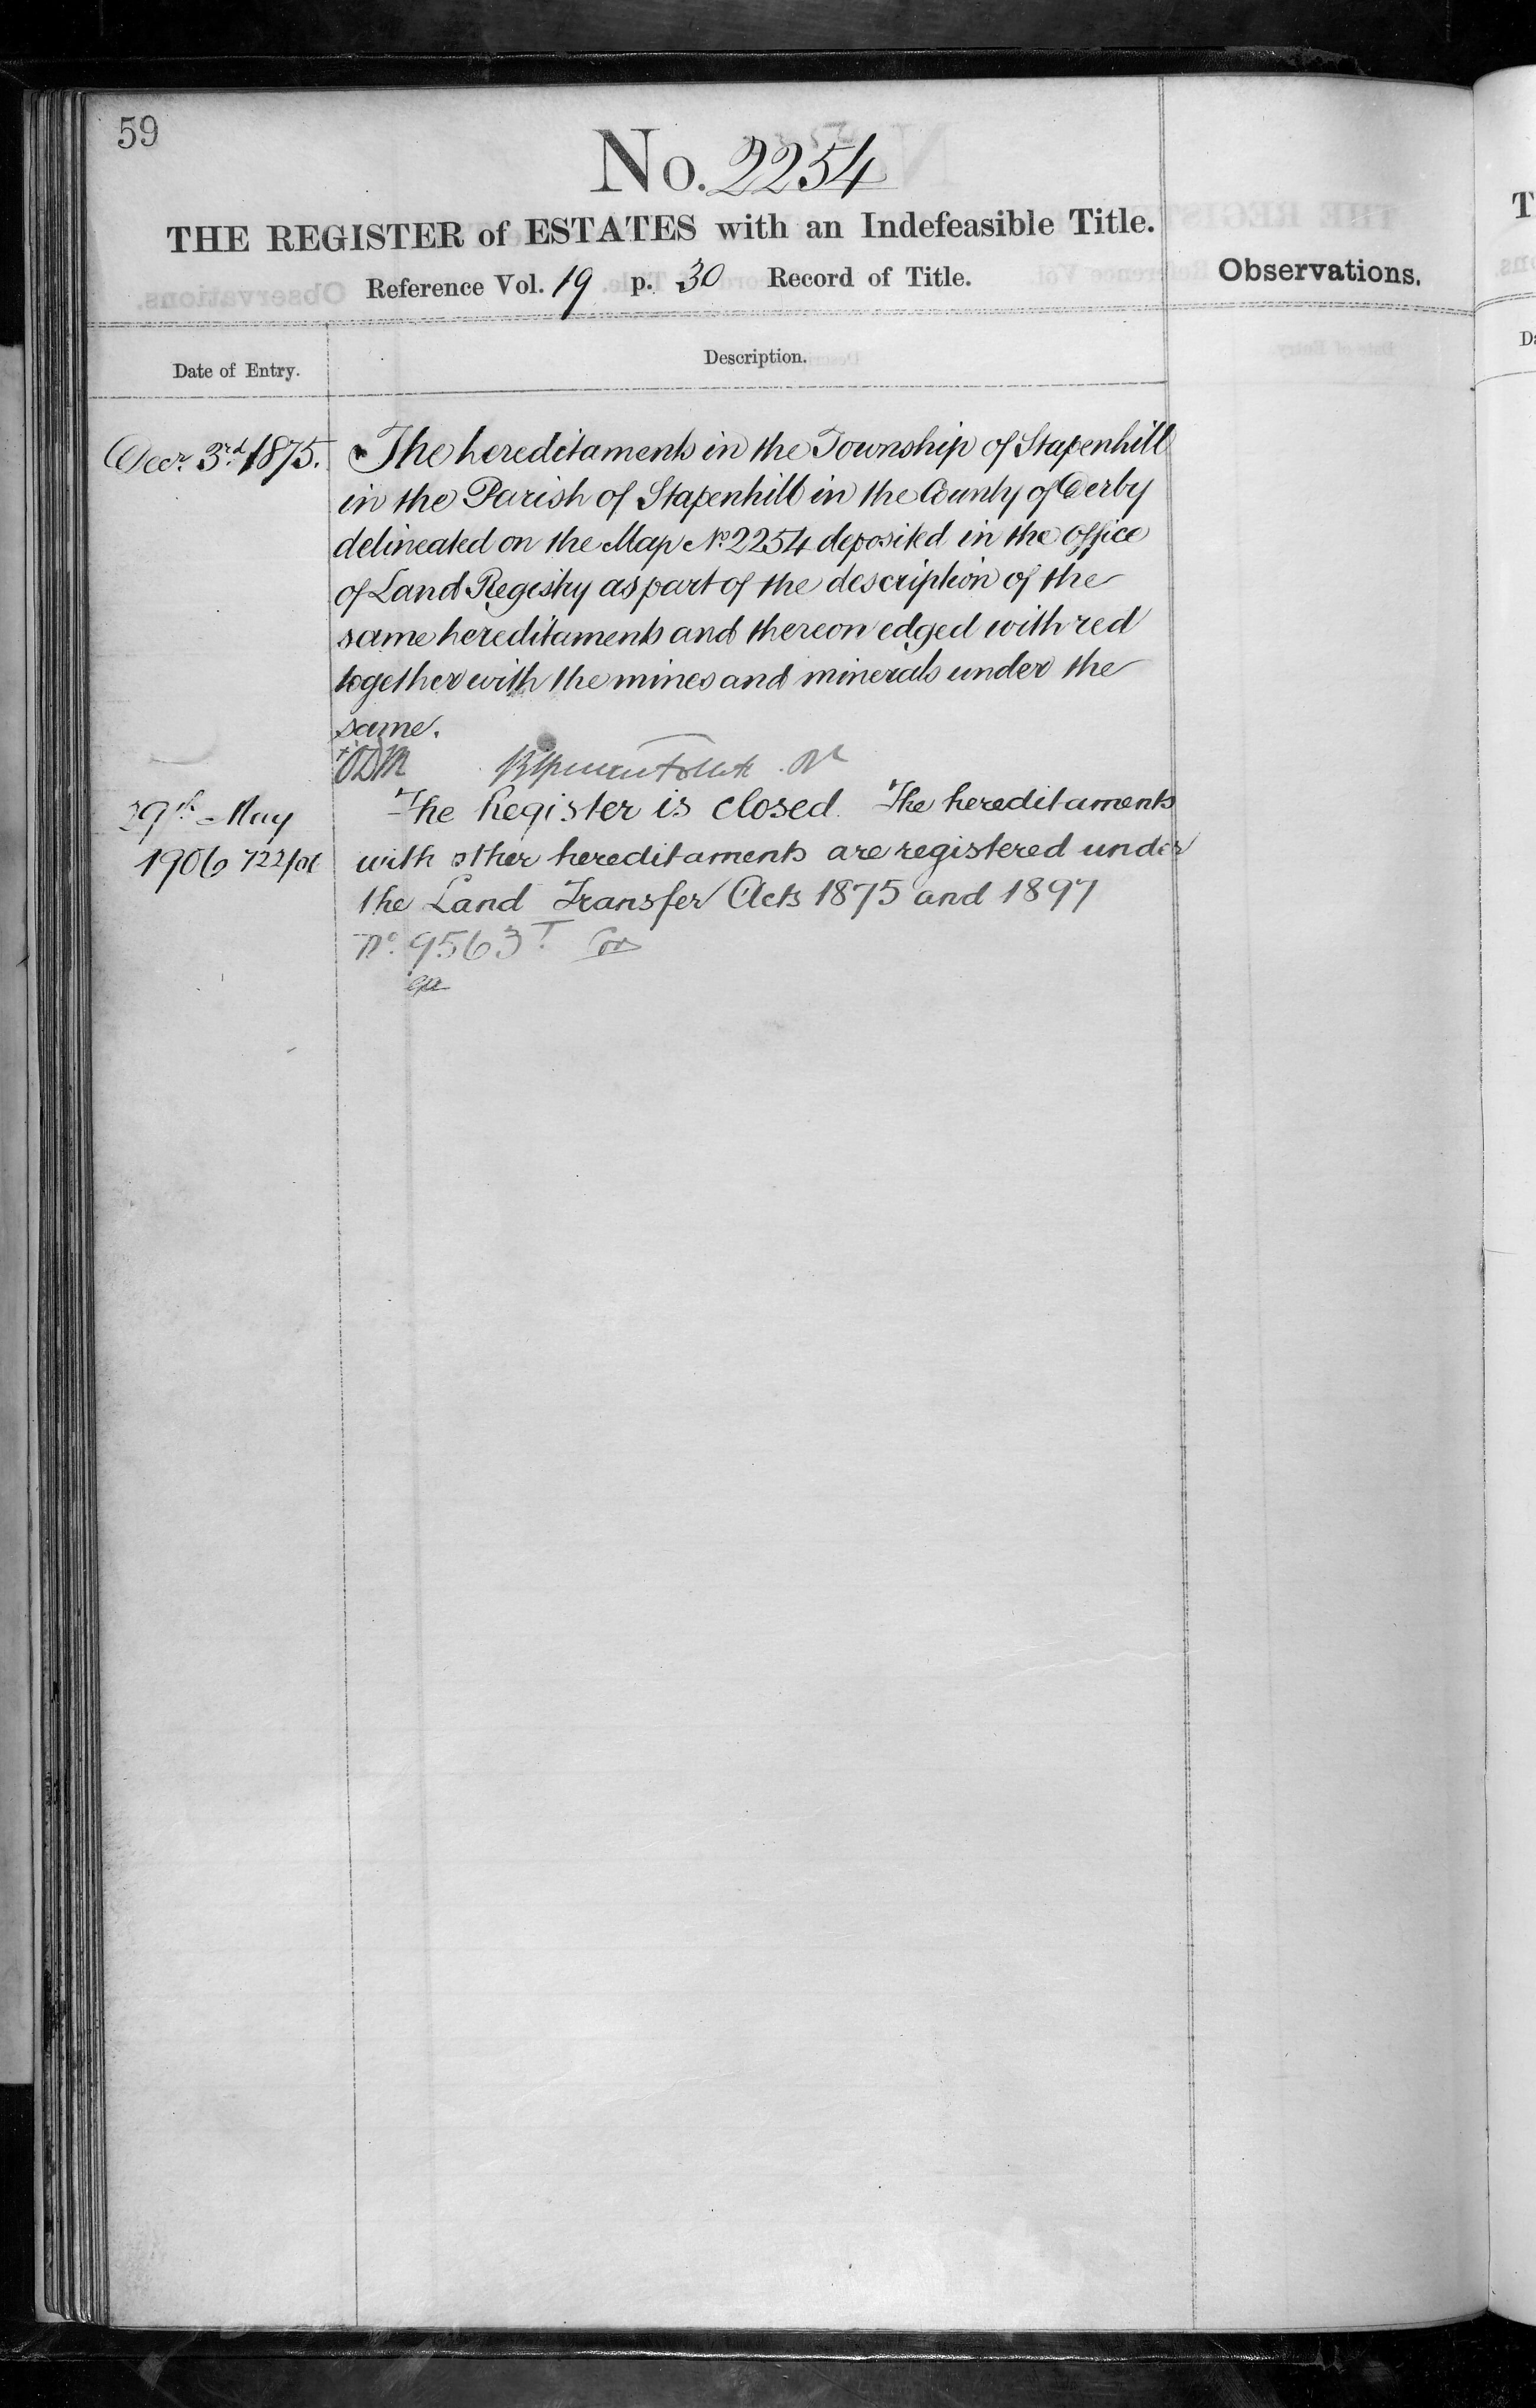 59
No. 2254
THE REGISTER of ESTATES with an Indefeasible Title.
Reference Vol. 19 p. 30 Record of Title.
Observations.
Date of Entry.
Description.
Decr. 3rd 1875.
The hereditaments in the Township of Stapenhill
in the Parish of Stapenhill in the County of Derby
delineated on the Map No. 2254 deposited in the office
of Land Registry as part of the description of the
same hereditaments and thereon edged with red
together with the mines and minerals under the
same.
29th May
1906 722/06
The Register is closed. The hereditaments
with other hereditaments are registered under
the Land Transfer Acts 1875 and 1897
No. 9563